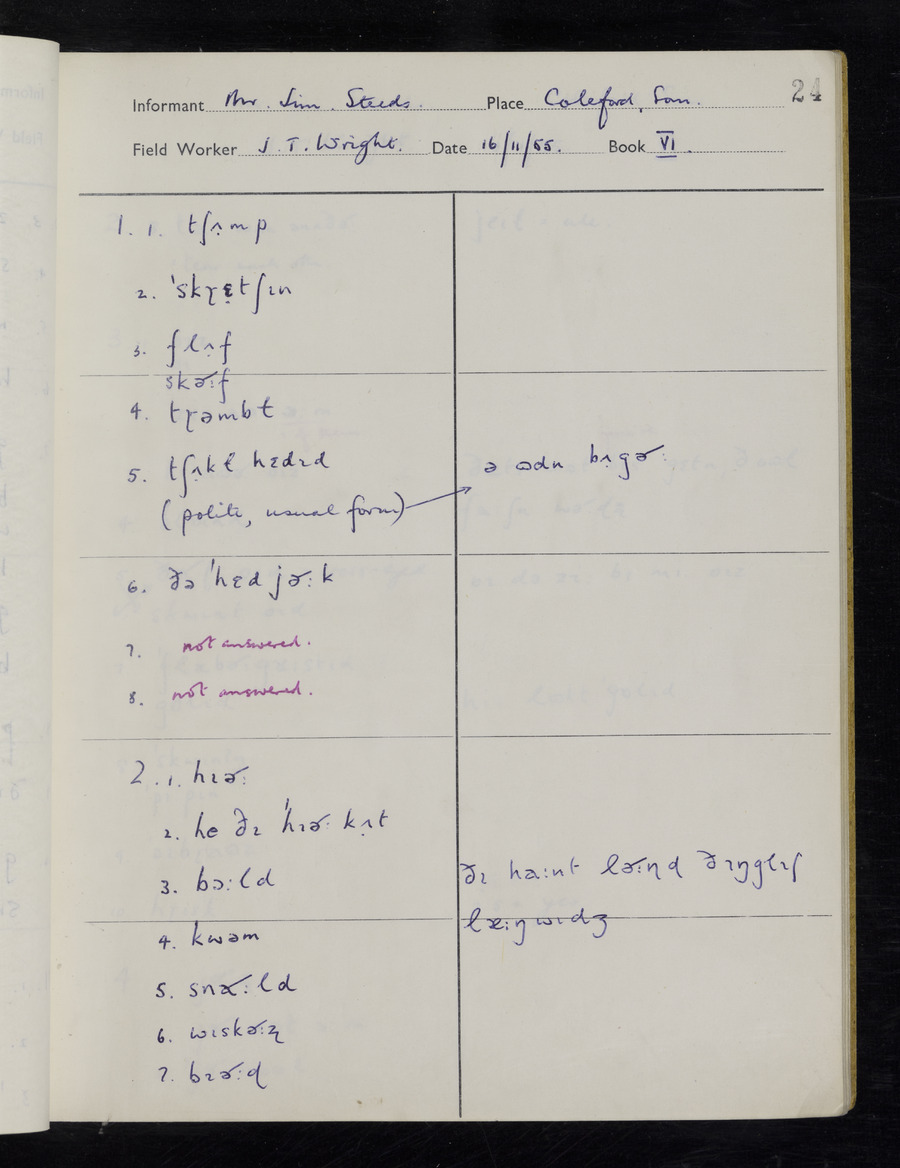 24
Informant Mr. Jim Steeds. Place Coleford, Som.
Field Worker J. T. Wright. Date 16/11/55. Book VI
1. 1. tʃʌ̣mp
2. ˈskɽɛ̣tʃɪn
3. flʌ̣f
skə˞ːf
4. tɽəmbɫ
5. tʃʌkɫ hɛdɪd
(polite, usual form)
ə ɒdn bɪgə˞ː
6. ðə ˈhɛd jə˞ːk
7. not answered.
8. not answered.
2. 1. hɪə˞ː
2. he ðɪ ˈhɪə˞ː kʌ̣t
3. bɔːld
ðɪ haːnt lə˞ːɳɖ ðɪŋglɪʃ
læːŋwɪdʒ
4. kwəm
5. snɑ˞ːld
6. wɪskə˞ːʐ
7. bɪə˞ːɖ